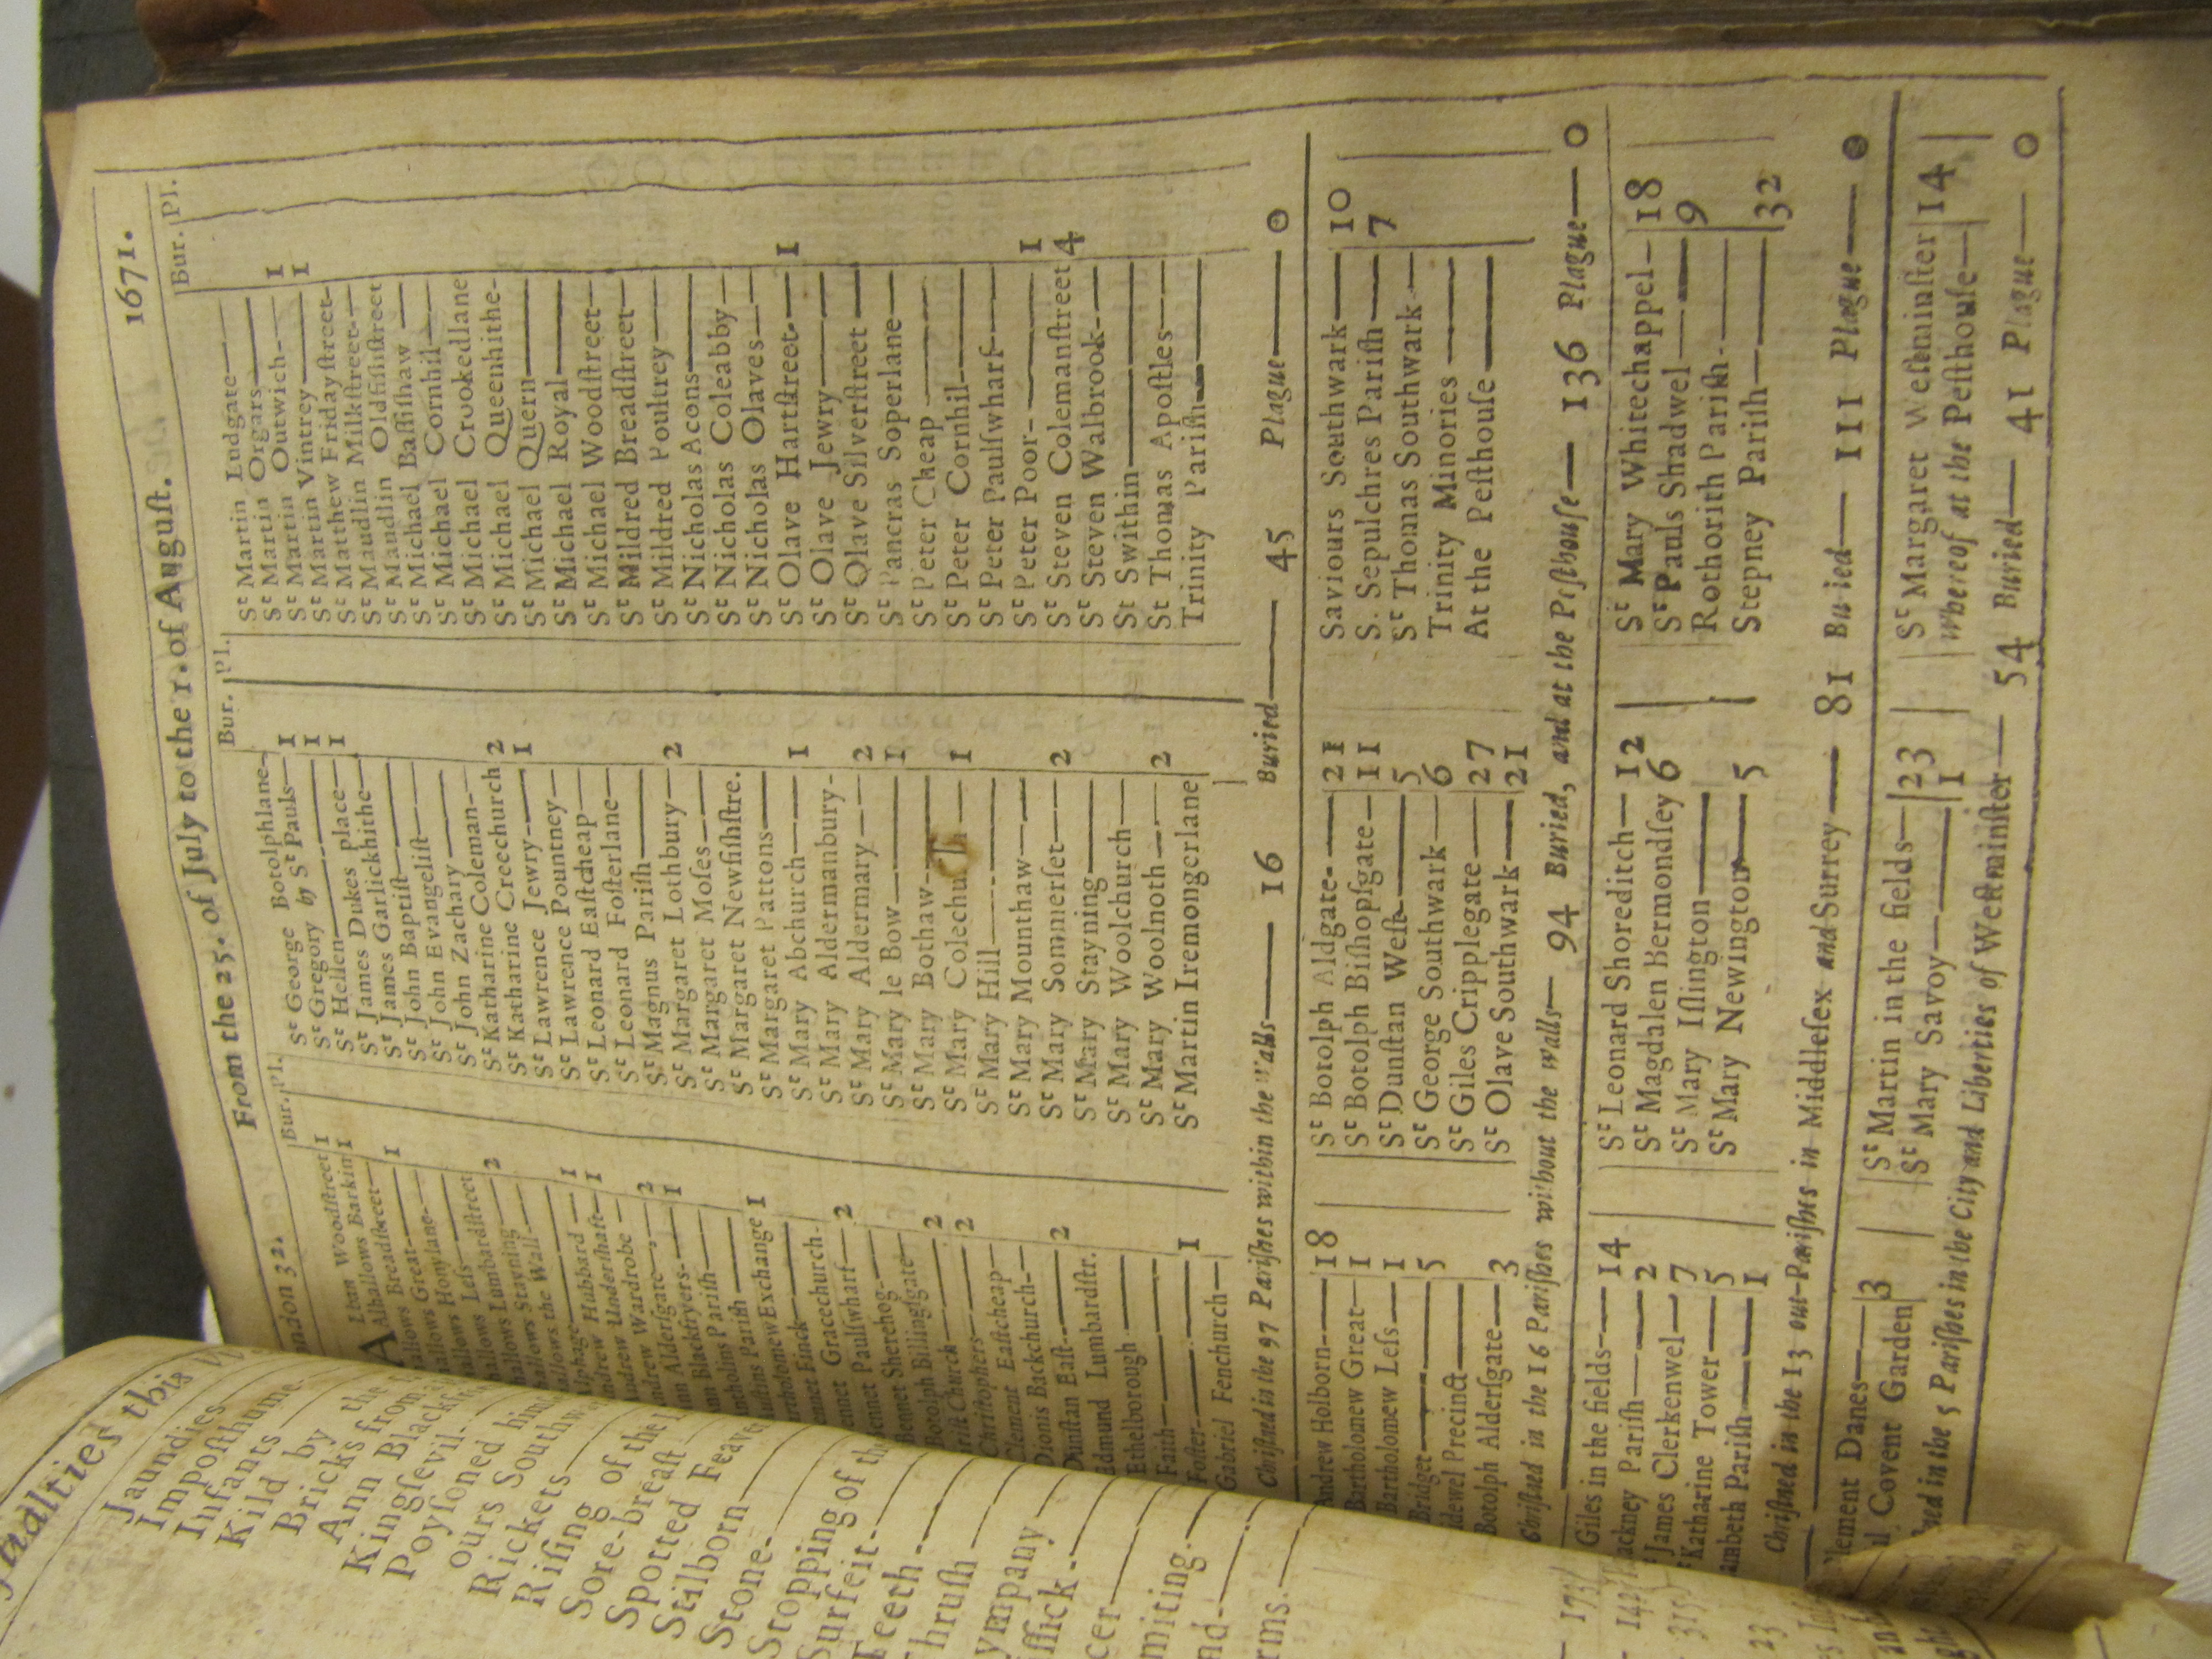 London 32. From the 25. of July to the 1. of Auguſt. 1671.
Bur. Pl.
Lban Woodſtreet 1
Alhallows Barkin 1
A
Breadſtreet——
Great—— 1
Honylane——
Leſs——
Lumbardſtreet
Stayning—— 2
the Wall——
Hubbard—— 1
Underſhaft— 1
Wardrobe—
Alderſgate—— 2
Blackfryers— 1
Pariſh——
Pariſh——
Exchange 1
Finck——
Gracechurch-
Paulſwharf— 2
Sherehog——
Botolph Billingſgate
Church—— 2
Chriſtophers—— 2
Clement Eaſtcheap—
Dionis Backchurch—
Dunſtan Eaſt—— 2
Edmund Lumbardſtr.
Ethelborough——
Faith——
Foſter——
Gabriel Fenchurch— 1
Bur. Pl.
Sᵗ George Botolphlane—
Sᵗ Gregory by Sᵗ Pauls— 1
Sᵗ Hellen—— 1
Sᵗ James Dukes place— 1
Sᵗ James Garlickhithe—
Sᵗ John Baptiſt——
Sᵗ John Evangeliſt——
Sᵗ John Zachary——
Sᵗ Katharine Coleman—
Sᵗ Katharine Creechurch 2
Sᵗ Lawrence Jewry—— 1
Sᵗ Lawrence Pountney—
Sᵗ Leonard Eaſtcheap—
Sᵗ Leonard Foſterlane—
Sᵗ Magnus Pariſh——
Sᵗ Margaret Lothbury— 2
Sᵗ Margaret Moſes——
Sᵗ Margaret Newfiſhſtre.
Sᵗ Margaret Pattons——
Sᵗ Mary Abchurch—— 1
Sᵗ Mary Aldermanbury-
Sᵗ Mary Aldermary—— 2
Sᵗ Mary le Bow—— 1
Sᵗ Mary Bothaw——
Sᵗ Mary Colechurch—— 1
Sᵗ Mary Hill——
Sᵗ Mary Mounthaw——
Sᵗ Mary Sommerſet—— 2
Sᵗ Mary Stayning——
Sᵗ Mary Woolchurch——
Sᵗ Mary Woolnoth—— 2
Sᵗ Martin Iremongerlane
Bur. Pl.
Sᵗ Martin Ludgate——
Sᵗ Martin Orgars——
Sᵗ Martin Outwich—— 1
Sᵗ Martin Vintrey—— 1
Sᵗ Mathew Fridayſtreet-
Sᵗ Maudlin Milkſtreet—
Sᵗ Maudlin Oldfiſhſtreet
Sᵗ Michael Baſſiſhaw——
Sᵗ Michael Cornhil——
Sᵗ Michael Crookedlane
Sᵗ Michael Queenhithe-
Sᵗ Michael Quern——
Sᵗ Michael Royal——
Sᵗ Michael Woodſtreet—
Sᵗ Mildred Breadſtreet—
Sᵗ Mildred Poultrey——
Sᵗ Nicholas Acons——
Sᵗ Nicholas Coleabby—
Sᵗ Nicholas Olaves——
Sᵗ Olave Hartſtreet—— 1
Sᵗ Olave Jewry——
Sᵗ Olave Silverſtreet——
Sᵗ Pancras Soperlane—
Sᵗ Peter Cheap——
Sᵗ Peter Cornhil——
Sᵗ Peter Paulſwharf——
Sᵗ Peter Poor—— 1
Sᵗ Steven Colemanſtreet 4
Sᵗ Steven Walbrook——
St Swithin——
St Thomas Apoſtles——
Trinity Pariſh——
Chriſtned in the 97 Pariſhes within the Walls—— 16 Buried—— 45 Plague—— 0
Andrew Holborn—— 18
Bartholomew Great— 1
Bartholomew Leſs— 1
Bridget—— 5
Precinct——
Botolph Alderſgate— 3
Sᵗ Botolph Aldgate—— 21
Sᵗ Botolph Biſhopſgate— 11
Sᵗ Dunſtan Weſt—— 5
Sᵗ George Southwark— 6
Sᵗ Giles Cripplegate—— 27
Sᵗ Olave Southwark—— 21
Saviours Southwark—— 10
S. Sepulchres Pariſh—— 7
Sᵗ Thomas Southwark—
Trinity Minories——
At the Peſthouſe——
Chriſtned in the 16 Pariſhes without the Walls— 94 Buried, and at the Peſthouſe— 136 Plague— 0
Giles in the fields—— 14
Hackney Pariſh—— 2
James Clerkenwel— 7
Katharine Tower— 5
Lambeth Pariſh—— 1
Sᵗ Leonard Shoreditch— 12
Sᵗ Magdalen Bermondſey 6
Sᵗ Mary Iſlington——
Sᵗ Mary Newington— 5
Sᵗ Mary Whitechappel— 18
Sᵗ Pauls Shadwel—— 9
Rothorith Pariſh——
Stepney Pariſh—— 32
Chriſtned in the 13 out-Pariſhes in Middleſex and Surrey—— 81 Buried—— 111 Plague—— 0
Clement Danes—— 3
Paul Covent Garden
Sᵗ Martin in the fields— 23
St Mary Savoy—— 1
Sᵗ Margaret Weſtminſter 14
Whereof at the Peſthouſe—
Chriſtned in the 5 Pariſhes in the City and Liberties of Weſtminſter— 54 Buried— 41 Plague— 0
this
Jaundies
Impoſthume
Infants
Kild by
Bricks
Ann Black
Kingſevil—
Poyſoned
Rickets
Riſing of the
Sore-breaſt
Spotted Feaver
Stilborn
Stone—
Stopping of the
Surfeit—
Teeth
Thruſh